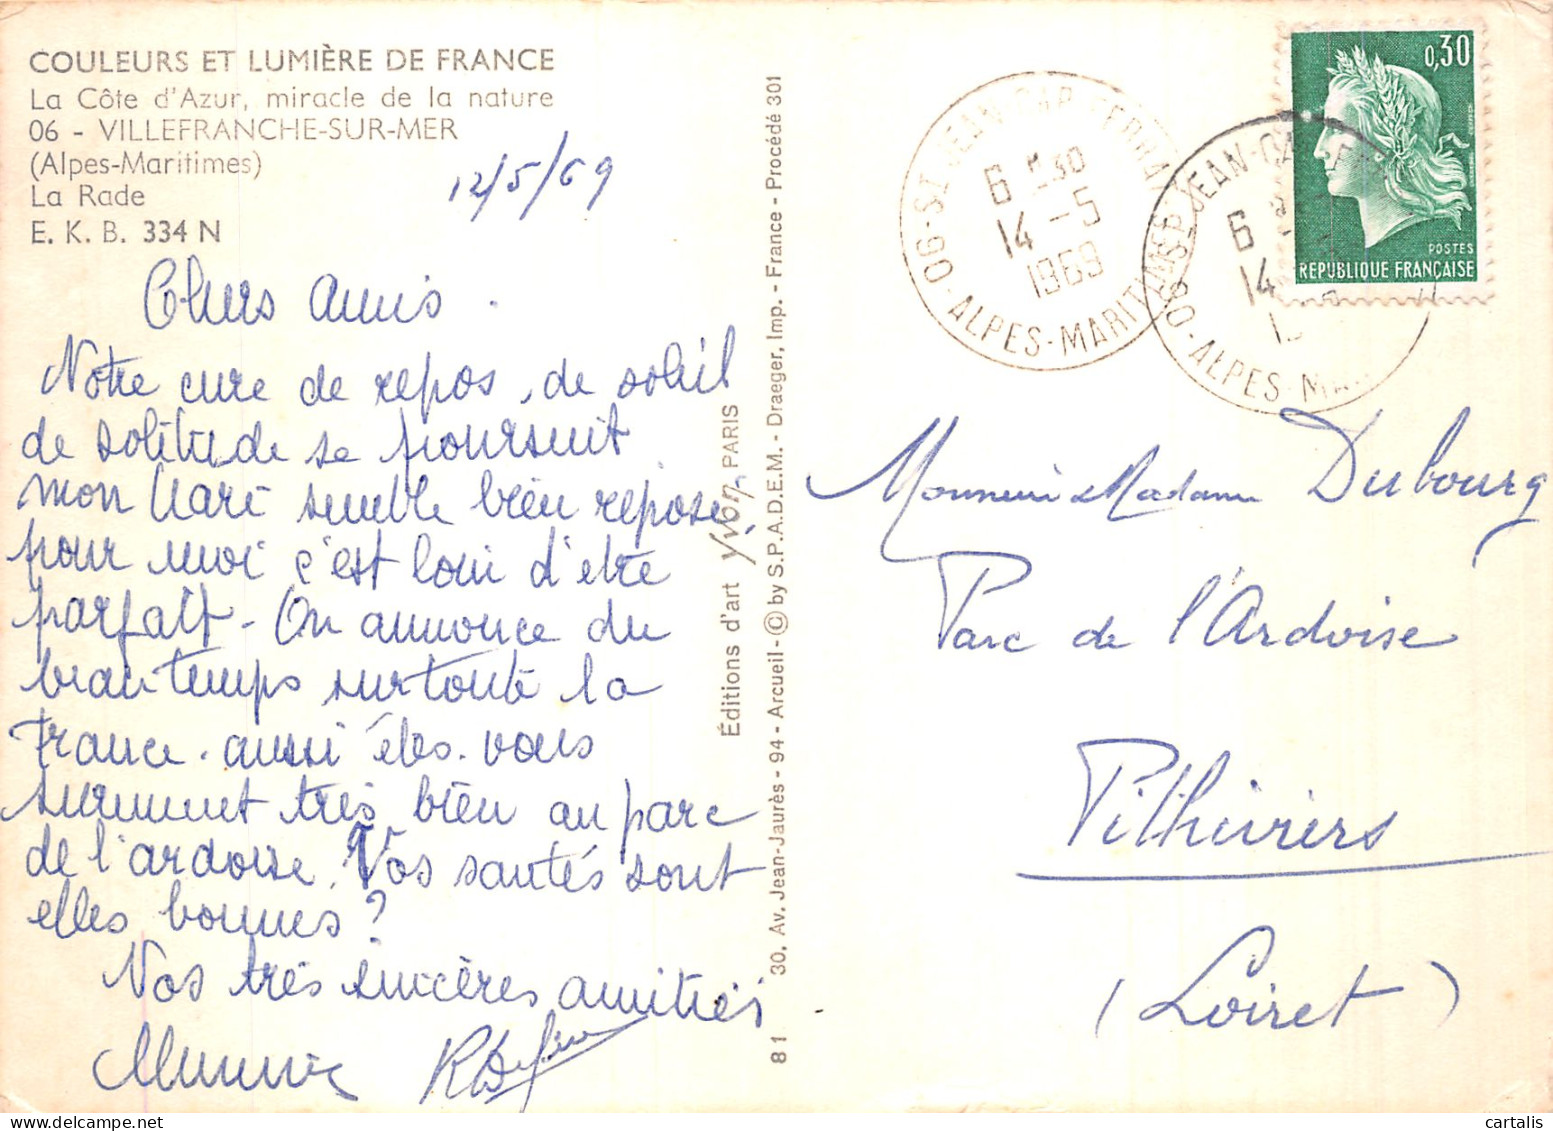 COULEURS ET LUMIÈRE DE FRANCE
La Côte d'Azur, miracle de la nature
06 - VILLEFRANCHE-SUR-MER
(Alpes-Maritimes)
La Rade
E. K. B. 334 N
12/5/69
Chers Amis.
Notre cure de repos, de soleil
de solitude se poursuit
mon Mari semble bien reposé,
pour moi c'est loin d'être
parfait - On annonce du
beau temps sur toute la
France. aussi êtes-vous
surement très bien au parc
de l'ardoise. Vos santés sont
elles bonnes?
Nos très sincères amitiés
Éditions d'art Yvon PARIS
81 30, Av. Jean-Jaurès - 94 - Arcueil - © by S.P.A.D.E.M. - Draeger, Imp. - France - Procédé 301
06-ST JEAN-CAP-FERRAT
6 H30
14 - 5
1969
ALPES-MARITIMES
06-ST JEAN-CAP-FE
6
14
ALPES-MA
0,30
POSTES
RÉPUBLIQUE FRANÇAISE
Monsieur Madame Dubourg
Parc de l'Ardoise
Pithiviers
(Loiret)
cartalis